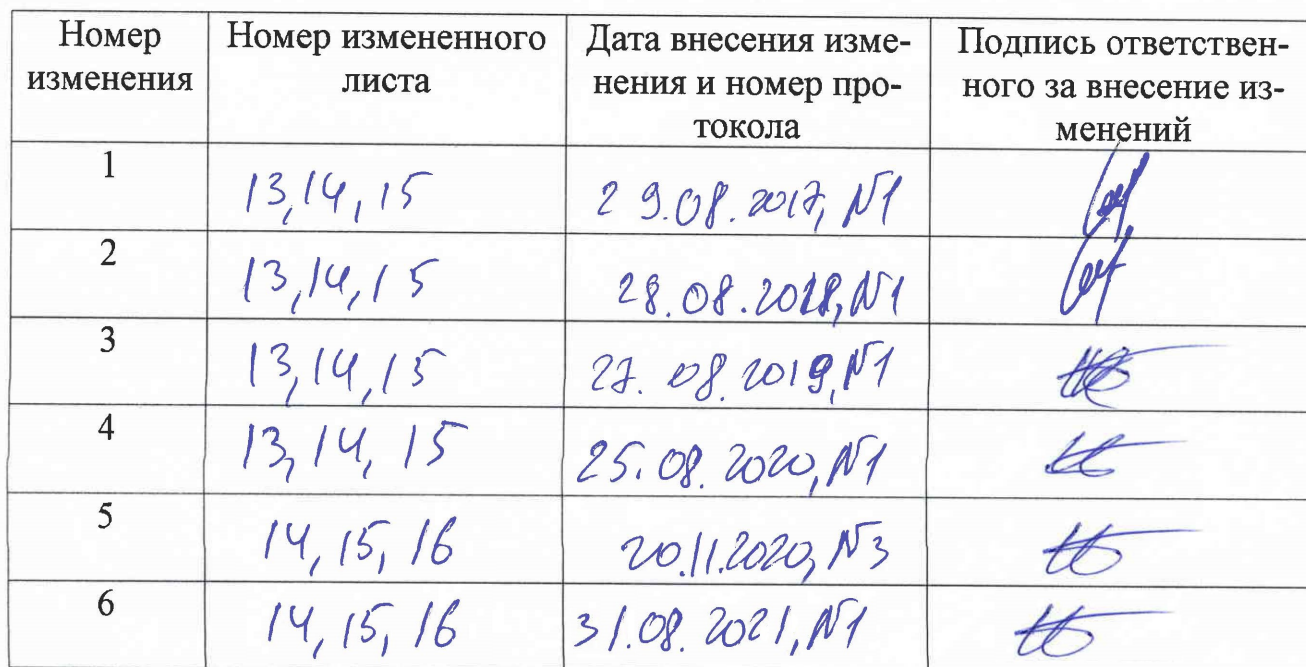 Номер изменения | Номер измененного листа | Дата внесения изме-нения и номер про-токола | Подпись ответствен-ного за внесение из-менений
1 | 13,14,15 | 29.08.2017, №1
2 | 13,14,15 | 28.08.2018, №1
3 | 13,14,15 | 27.08.2019, №1
4 | 13, 14, 15 | 25.08.2020, №1
5 | 14, 15, 16 | 20.11.2020, №3
6 | 14, 15, 16 | 31.08.2021, №1